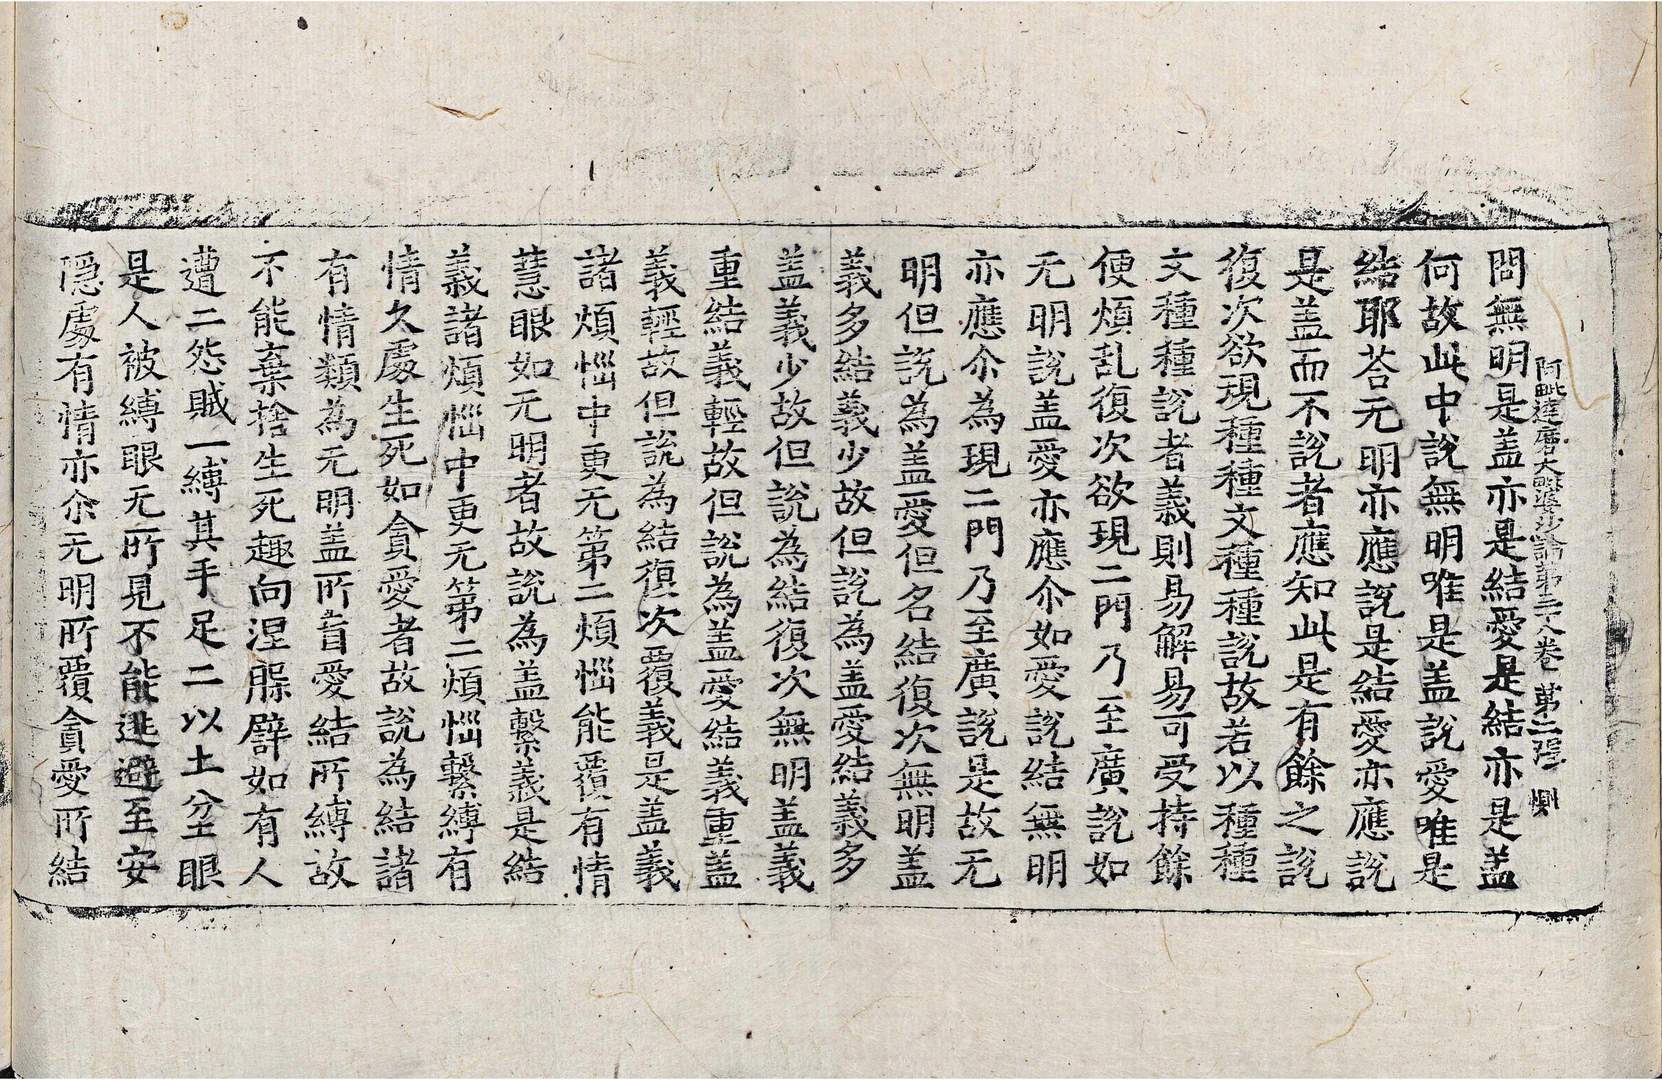 阿毗達磨大毗婆沙論第三八卷 第二張 惻
問無明是盖亦是結愛是結亦是盖
何故此中說無明唯是盖說愛唯是
結耶荅无明亦應說是結愛亦應說
是盖而不說者應知此是有餘之說
復次欲現種種文種種說故若以種種
文種種說者義則易解易可受持餘
便煩乱復次欲現二門乃至廣說如
无明說盖愛亦應尒如愛說結無明
亦應尒為現二門乃至廣說是故无
明但說為盖愛但名結復次無明盖
義多結義少故但說為盖愛結義多
盖義少故但說為結復次無明盖義
重結義輕故但說為盖愛結義重盖
義輕故但說為結復次覆義是盖義
諸煩惱中更无第二煩惱能覆有情
慧眼如无明者故說為盖繫義是結
義諸煩惱中更无第二煩惱繫縛有
情久處生死如貪愛者故說為結諸
有情類為无明盖所盲愛結所縛故
不能棄捨生死趣向涅槃譬如有人
遭二怨賊一縛其手足二以土坌眼
是人被縛眼无所見不能逃避至安
隱處有情亦尒无明所覆貪愛所結